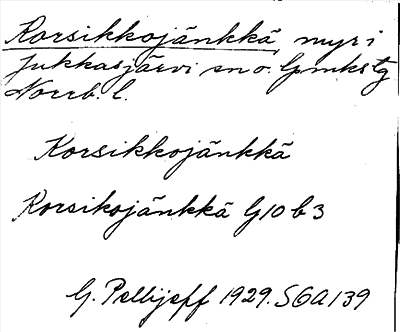 Korsikkojänkkä, myr i
Jukkasjärvi sn o. Gmkstg
Norrb. l.
Korsikkojänkkä
Korsikojänkkä G10 b3
G. Pellijeff 1929. SOA 139